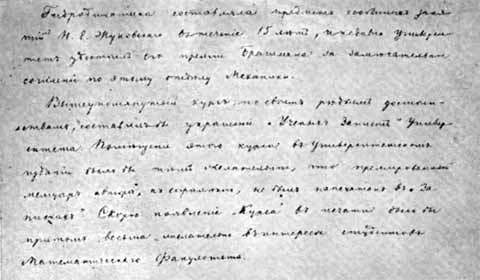 Гидродинамика составляла предметъ особыхъ заня
тій Н. Е. Жуковскаго въ теченіе 15 лѣтъ, и недавно Универси
тетъ удостоилъ его преміи Брашмана за замѣчательн
по этому отдѣлу Механики.
Вышеупомянутый курсъ, по своимъ рѣдкимъ достоин-
ствамъ, составилъ бы украшеніе „Ученыхъ Записокъ" Универ-
ситета. Помѣщеніе этого курса въ Университетскомъ
изданіи было бы тѣмъ желательнѣе, что премированный
мемуаръ автора, къ сожалѣнію, не былъ напечатанъ въ „За
пискахъ". Скорое появленіе „Курса" въ печати было бы
притомъ весьма желательно въ интересахъ студентовъ
Математическаго Факультета.